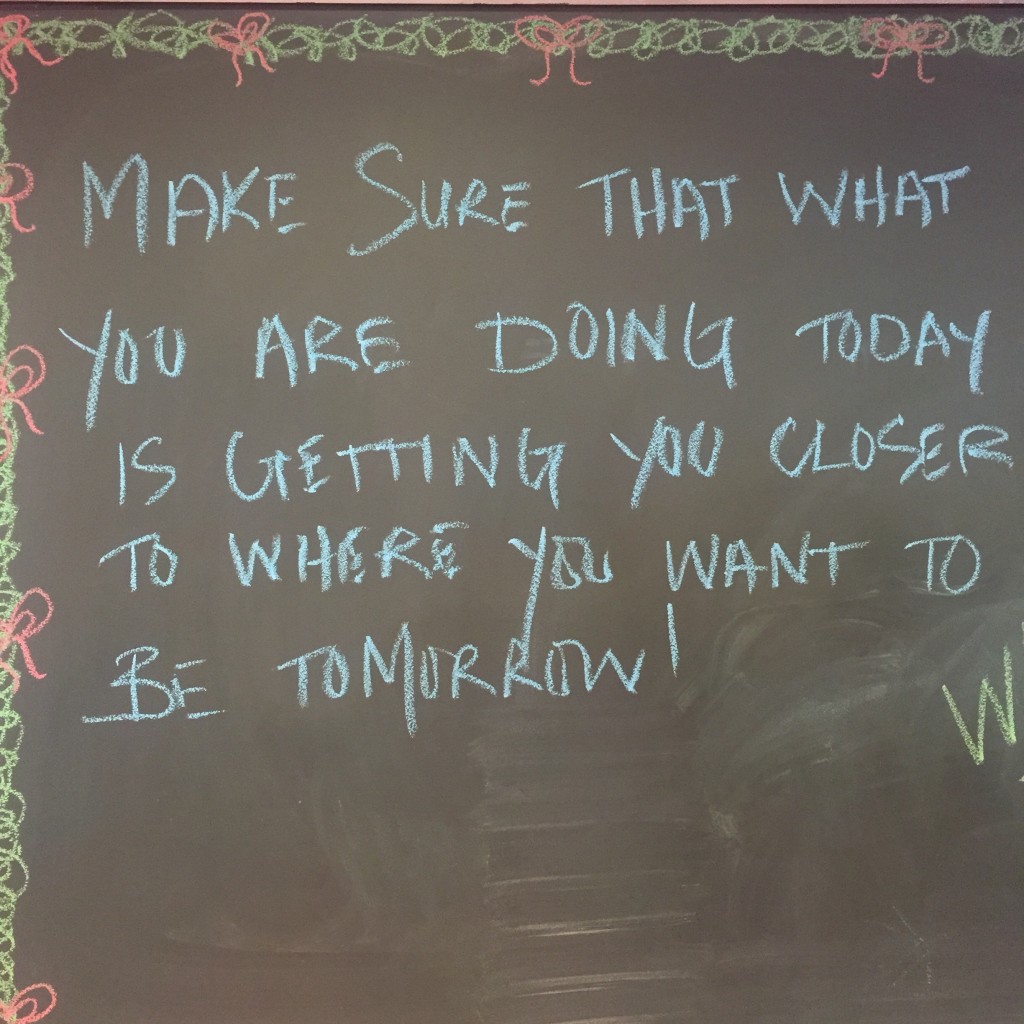 MAKE SURE THAT WHAT
YOU ARE DOING TODAY
IS GETTING YOU CLOSER
TO WHERE YOU WANT TO
BE TOMORROW!
W